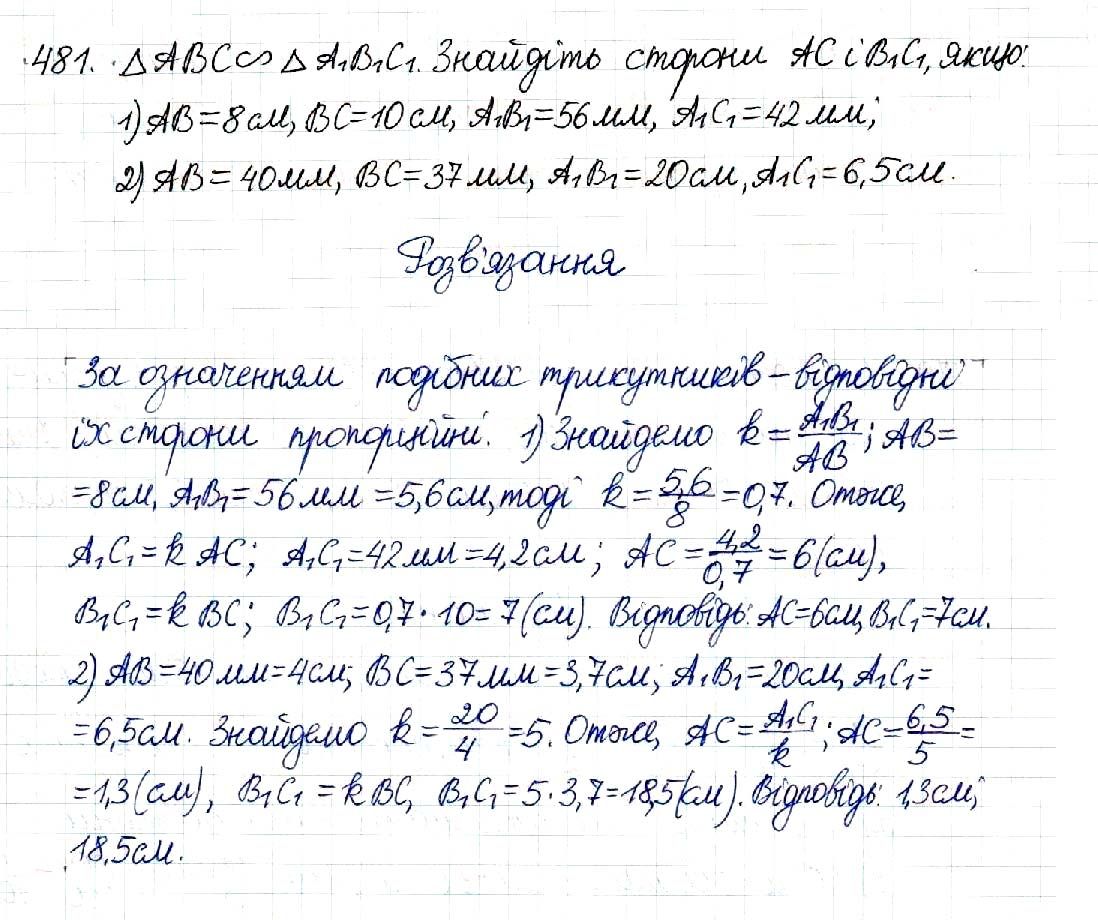 481. △ABC∽△A₁B₁C₁. Знайдіть сторони AC і B₁C₁, якщо:
1) AB=8см, BC=10см, A₁B₁=56мм, A₁C₁=42мм;
2) AB=40мм, BC=37мм, A₁B₁=20см, A₁C₁=6,5см.
Розв'язання
За означенням подібних трикутників – відповідні
їх сторони пропорційні. 1) Знайдемо k=A₁B₁/AB; AB=
=8см, A₁B₁=56мм=5,6см, тоді k=5,6/8=0,7. Отже,
A₁C₁=k AC; A₁C₁=42мм=4,2см; AC=4,2/0,7=6(см),
B₁C₁=k BC; B₁C₁=0,7·10=7(см). Відповідь: AC=6см, B₁C₁=7см.
2) AB=40мм=4см; BC=37мм=3,7см; A₁B₁=20см, A₁C₁=
=6,5см. Знайдемо k=20/4=5. Отже, AC=A₁C₁/k; AC=6,5/5=
=1,3(см), B₁C₁=k BC, B₁C₁=5·3,7=18,5(см). Відповідь: 1,3см;
18,5см.